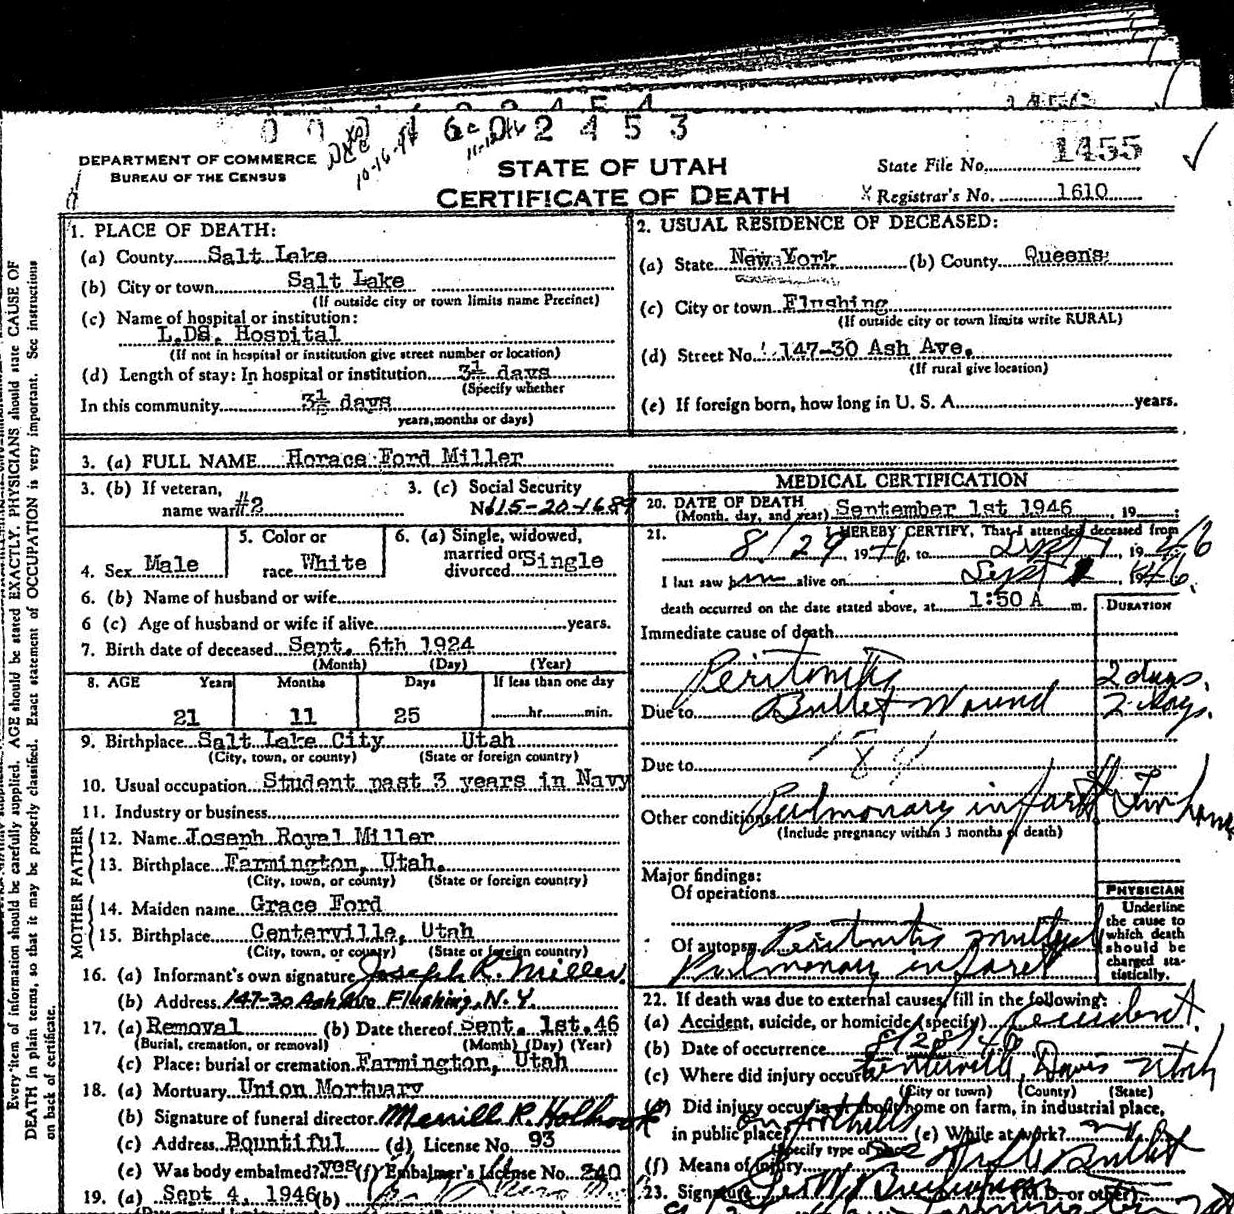 0 0 4 6 0 2 4 5 3
10-16-94
DEPARTMENT OF COMMERCE
BUREAU OF THE CENSUS
STATE OF UTAH
CERTIFICATE OF DEATH
State File No. 1455
X Registrar's No. 1610
1. PLACE OF DEATH:
(a) County Salt Lake
(b) City or town Salt Lake
(If outside city or town limits name Precinct)
(c) Name of hospital or institution:
L.DS. Hospital
(If not in hospital or institution give street number or location)
(d) Length of stay: In hospital or institution 3½ days
(Specify whether
In this community 3½ days
years, months or days)
2. USUAL RESIDENCE OF DECEASED:
(a) State New York (b) County Queens
(c) City or town Flushing
(If outside city or town limits write RURAL)
(d) Street No. 147-30 Ash Ave.
(If rural give location)
(e) If foreign born, how long in U. S. A. years.
3. (a) FULL NAME Horace Ford Miller
3. (b) If veteran, name war #2
3. (c) Social Security No. 115-20-1689
4. Sex Male
5. Color or race White
6. (a) Single, widowed, married or divorced Single
6. (b) Name of husband or wife
6 (c) Age of husband or wife if alive years.
7. Birth date of deceased Sept. 6th 1924
(Month) (Day) (Year)
8. AGE Years Months Days If less than one day
21 11 25 hr. min.
9. Birthplace Salt Lake City Utah
(City, town, or county) (State or foreign country)
10. Usual occupation Student past 3 years in Navy
11. Industry or business
FATHER
12. Name Joseph Royal Miller
13. Birthplace Farmington, Utah.
(City, town, or county) (State or foreign country)
MOTHER
14. Maiden name Grace Ford
15. Birthplace Centerville, Utah
(City, town, or county) (State or foreign country)
16. (a) Informant's own signature Joseph R. Miller.
(b) Address 147-30 Ash Ave Flushing, N.Y.
17. (a) Removal (b) Date thereof Sept. 1st.46
(Burial, cremation, or removal) (Month) (Day) (Year)
(c) Place: burial or cremation Farmington, Utah
18. (a) Mortuary Union Mortuary
(b) Signature of funeral director Merrill R. Holbrook
(c) Address Bountiful (d) License No. 93
(e) Was body embalmed? yes (f) Embalmer's License No. 240
19. (a) Sept 4, 1946 (b)
MEDICAL CERTIFICATION
20. DATE OF DEATH September 1st 1946, 19
(Month, day, and year)
21. I HEREBY CERTIFY, That I attended deceased from
8/29, 1946, to Sept 1, 1946
I last saw him alive on Sept 1, 1946.
death occurred on the date stated above, at 1:50 A m.
DURATION
Immediate cause of death
Peritonitis 2 days.
Due to Bullet Wound 2 days.
Due to
Other conditions Pulmonary infarct
(Include pregnancy within 3 months of death)
Major findings:
Of operations
Of autopsy Peritonitis multiple
Pulmonary infarct
PHYSICIAN
Underline
the cause to
which death
should be
charged sta-
tistically.
22. If death was due to external causes, fill in the following:
(a) Accident, suicide, or homicide (specify) Accident.
(b) Date of occurrence 8/28/46
(c) Where did injury occur? Centerville, Davis Utah
(City or town) (County) (State)
(d) Did injury occur in or about home on farm, in industrial place,
in public place? on foothills (e) While at work? no
(Specify type of place)
(f) Means of injury Rifle Bullet
23. Signature (M.D. or other)
Every item of information should be carefully supplied. AGE should be stated EXACTLY. PHYSICIANS should state CAUSE OF
DEATH in plain terms, so that it may be properly classified. Exact statement of OCCUPATION is very important. See instructions
on back of certificate.